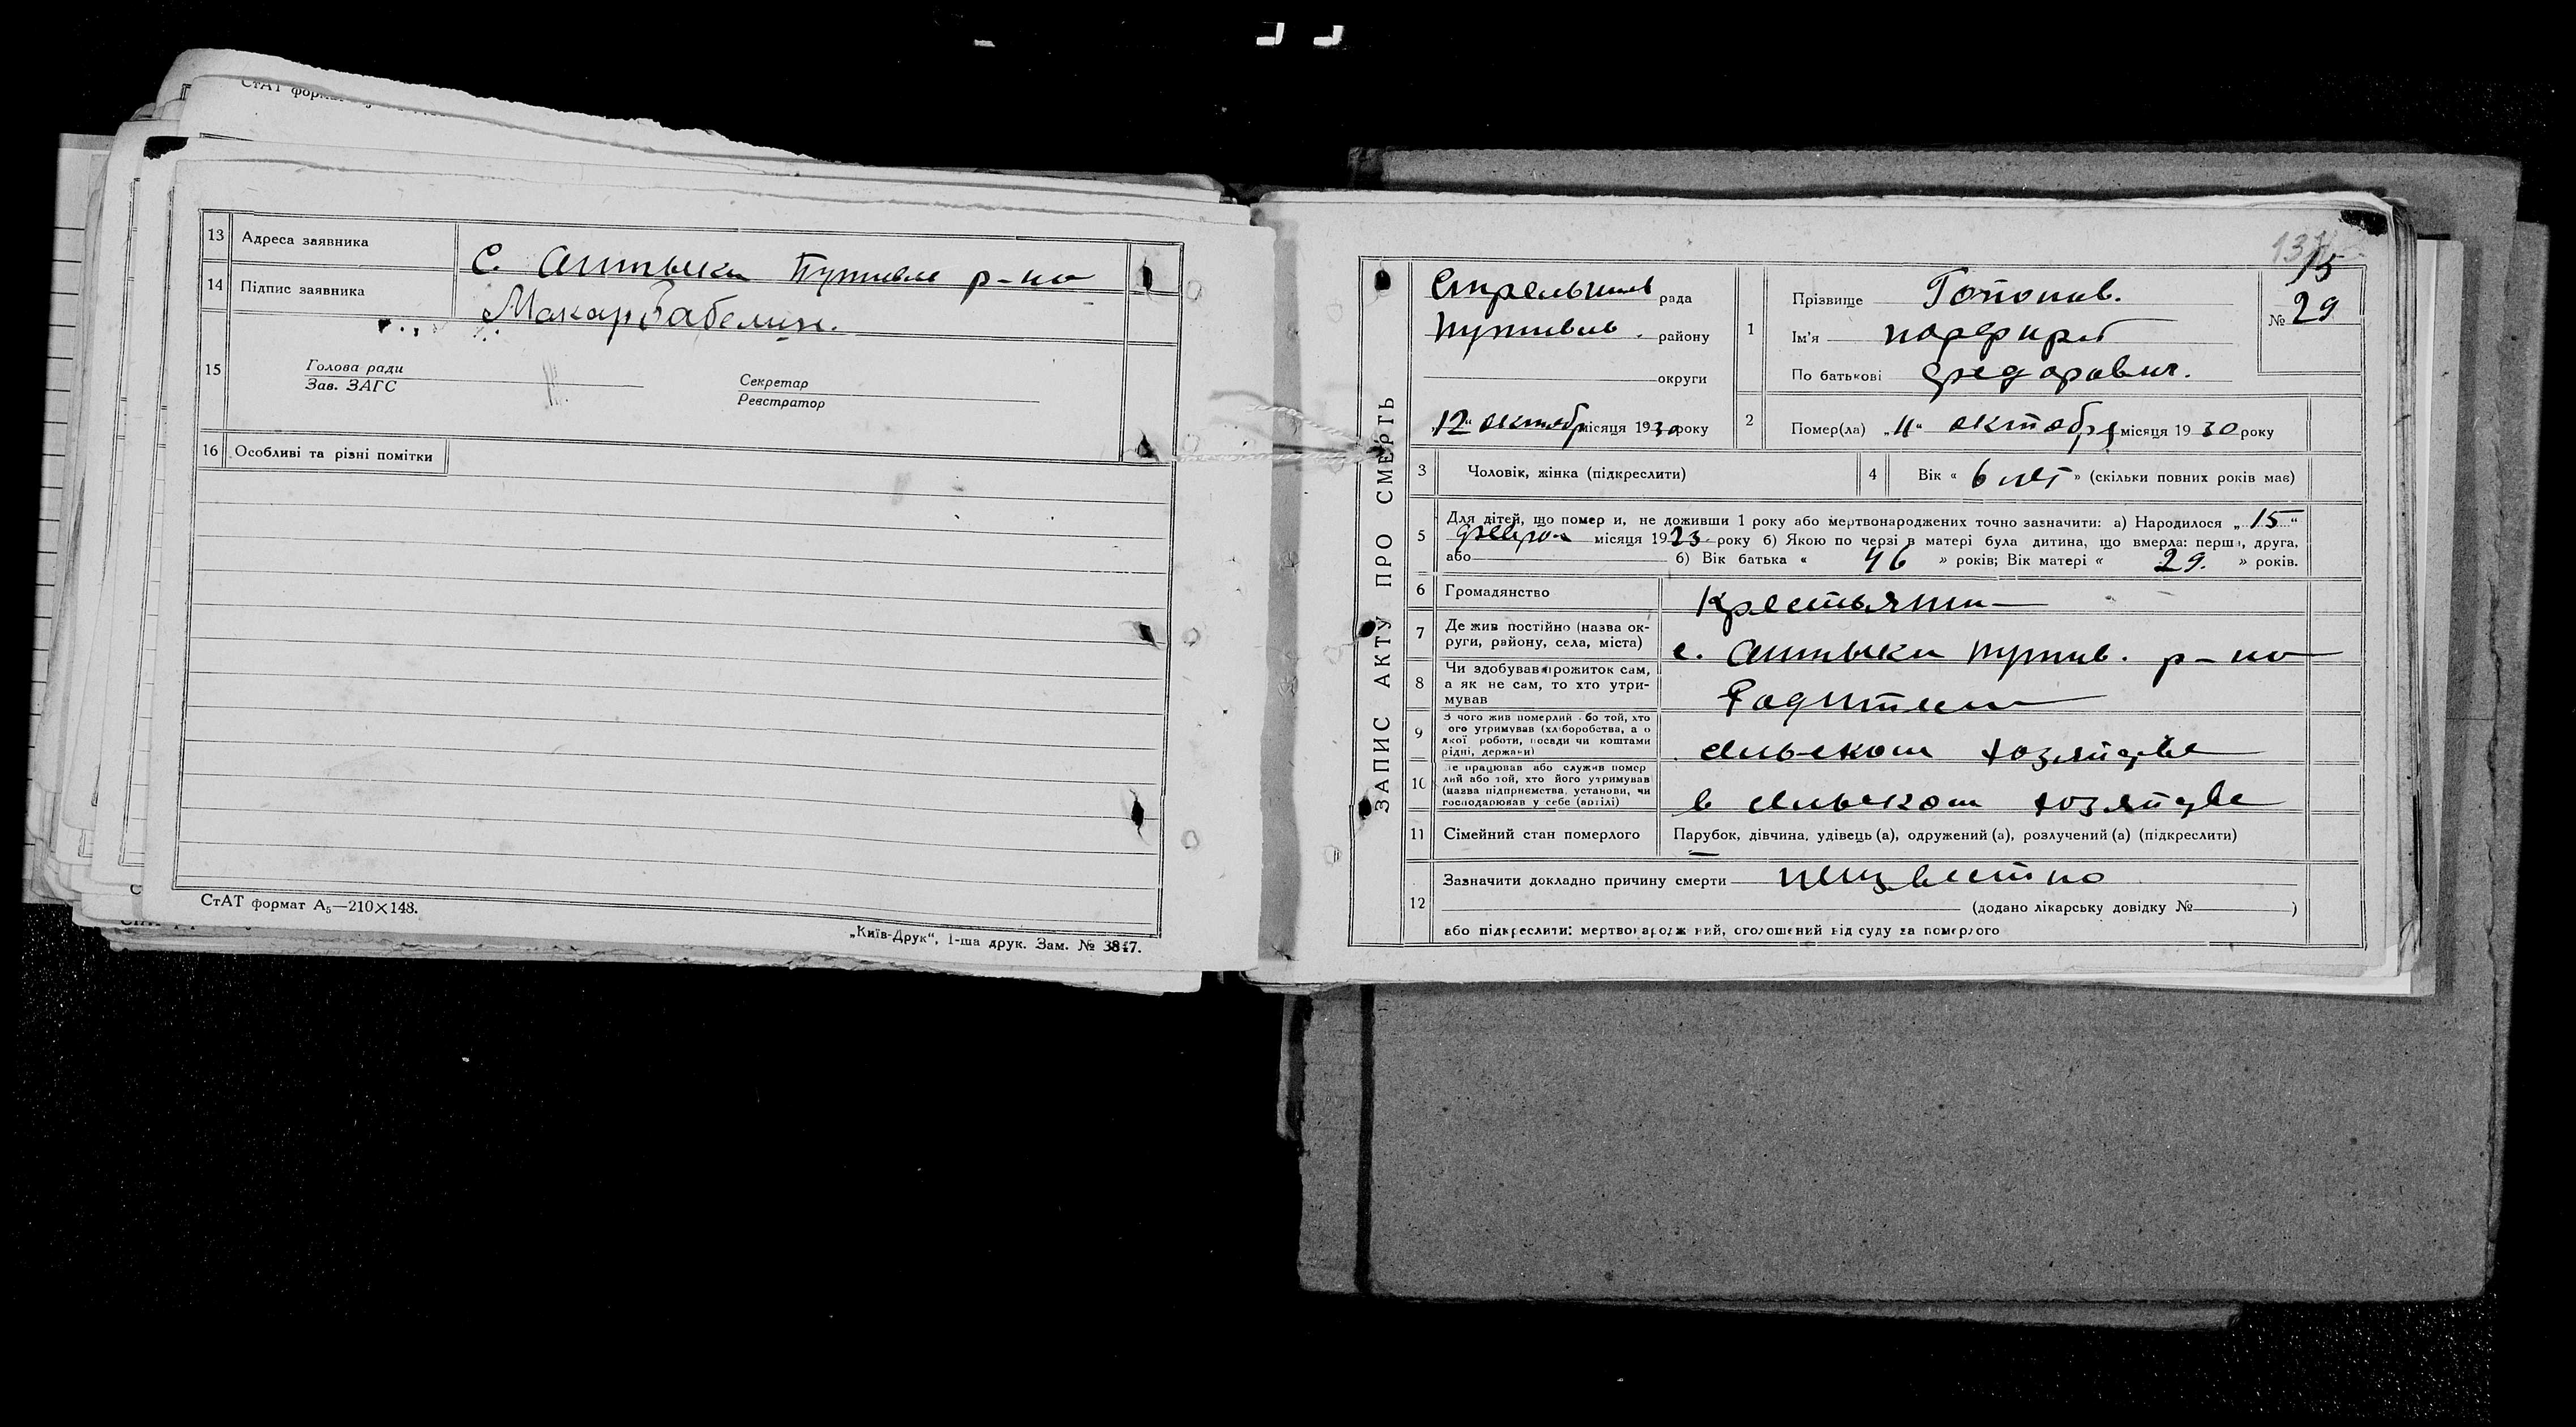 СтАТ
13 Адреса заявника
С. Антыки Путивл р-на
14 Підпис заявника
Макар
15
Голова ради
Зав. ЗАГС
Секретар
Реєстратор
16 Особливі та різні помітки
СтАТ формат А₅—210×148.
„Київ-Друк“, 1-ша друк. Зам. № 3847.
ЗАПИС АКТУ ПРО СМЕРТЬ
15
рада
Путивль. району
округи
„12“ октябр місяця 1930 року
1 Прізвище
Ім'я Порфирий
По батькові Федорович.
№ 29
2 Помер(ла) „11“ октября місяця 1930 року
3 Чоловік, жінка (підкреслити)
4 Вік « 6 лет » (скільки повних років має)
5 Для дітей, що померли, не доживши 1 року або мертвонароджених точно зазначити: а) Народилося „15“
февраля місяця 1923 року б) Якою по черзі в матері була дитина, що вмерла: перша, друга,
або б) Вік батька « 46 » років; Вік матері « 29. » років.
6 Громадянство Крестьянин
7 Де жив постійно (назва ок-
руги, району, села, міста)
с. Антыки Путив. р-на
8 Чи здобував прожиток сам,
а як не сам, то хто утри-
мував
Родители
9 З чого жив померлий або той, хто
його утримував (хліборобства, а о
якої роботи, посади чи коштами
рідні, держави)
сельском хозяйстве
10 Де працював або служив помер
лий або той, хто його утримував
(назва підприємства, установи, чи
господарював у себе (артілі)
в сельском хозяйстве
11 Сімейний стан померлого Парубок, дівчина, удівець (а), одружений (а), розлучений (а) (підкреслити)
12 Зазначити докладно причину смерти неизвестно
(додано лікарську довідку № )
або підкреслити: мертвонароджений, оголошений від суду за померлого